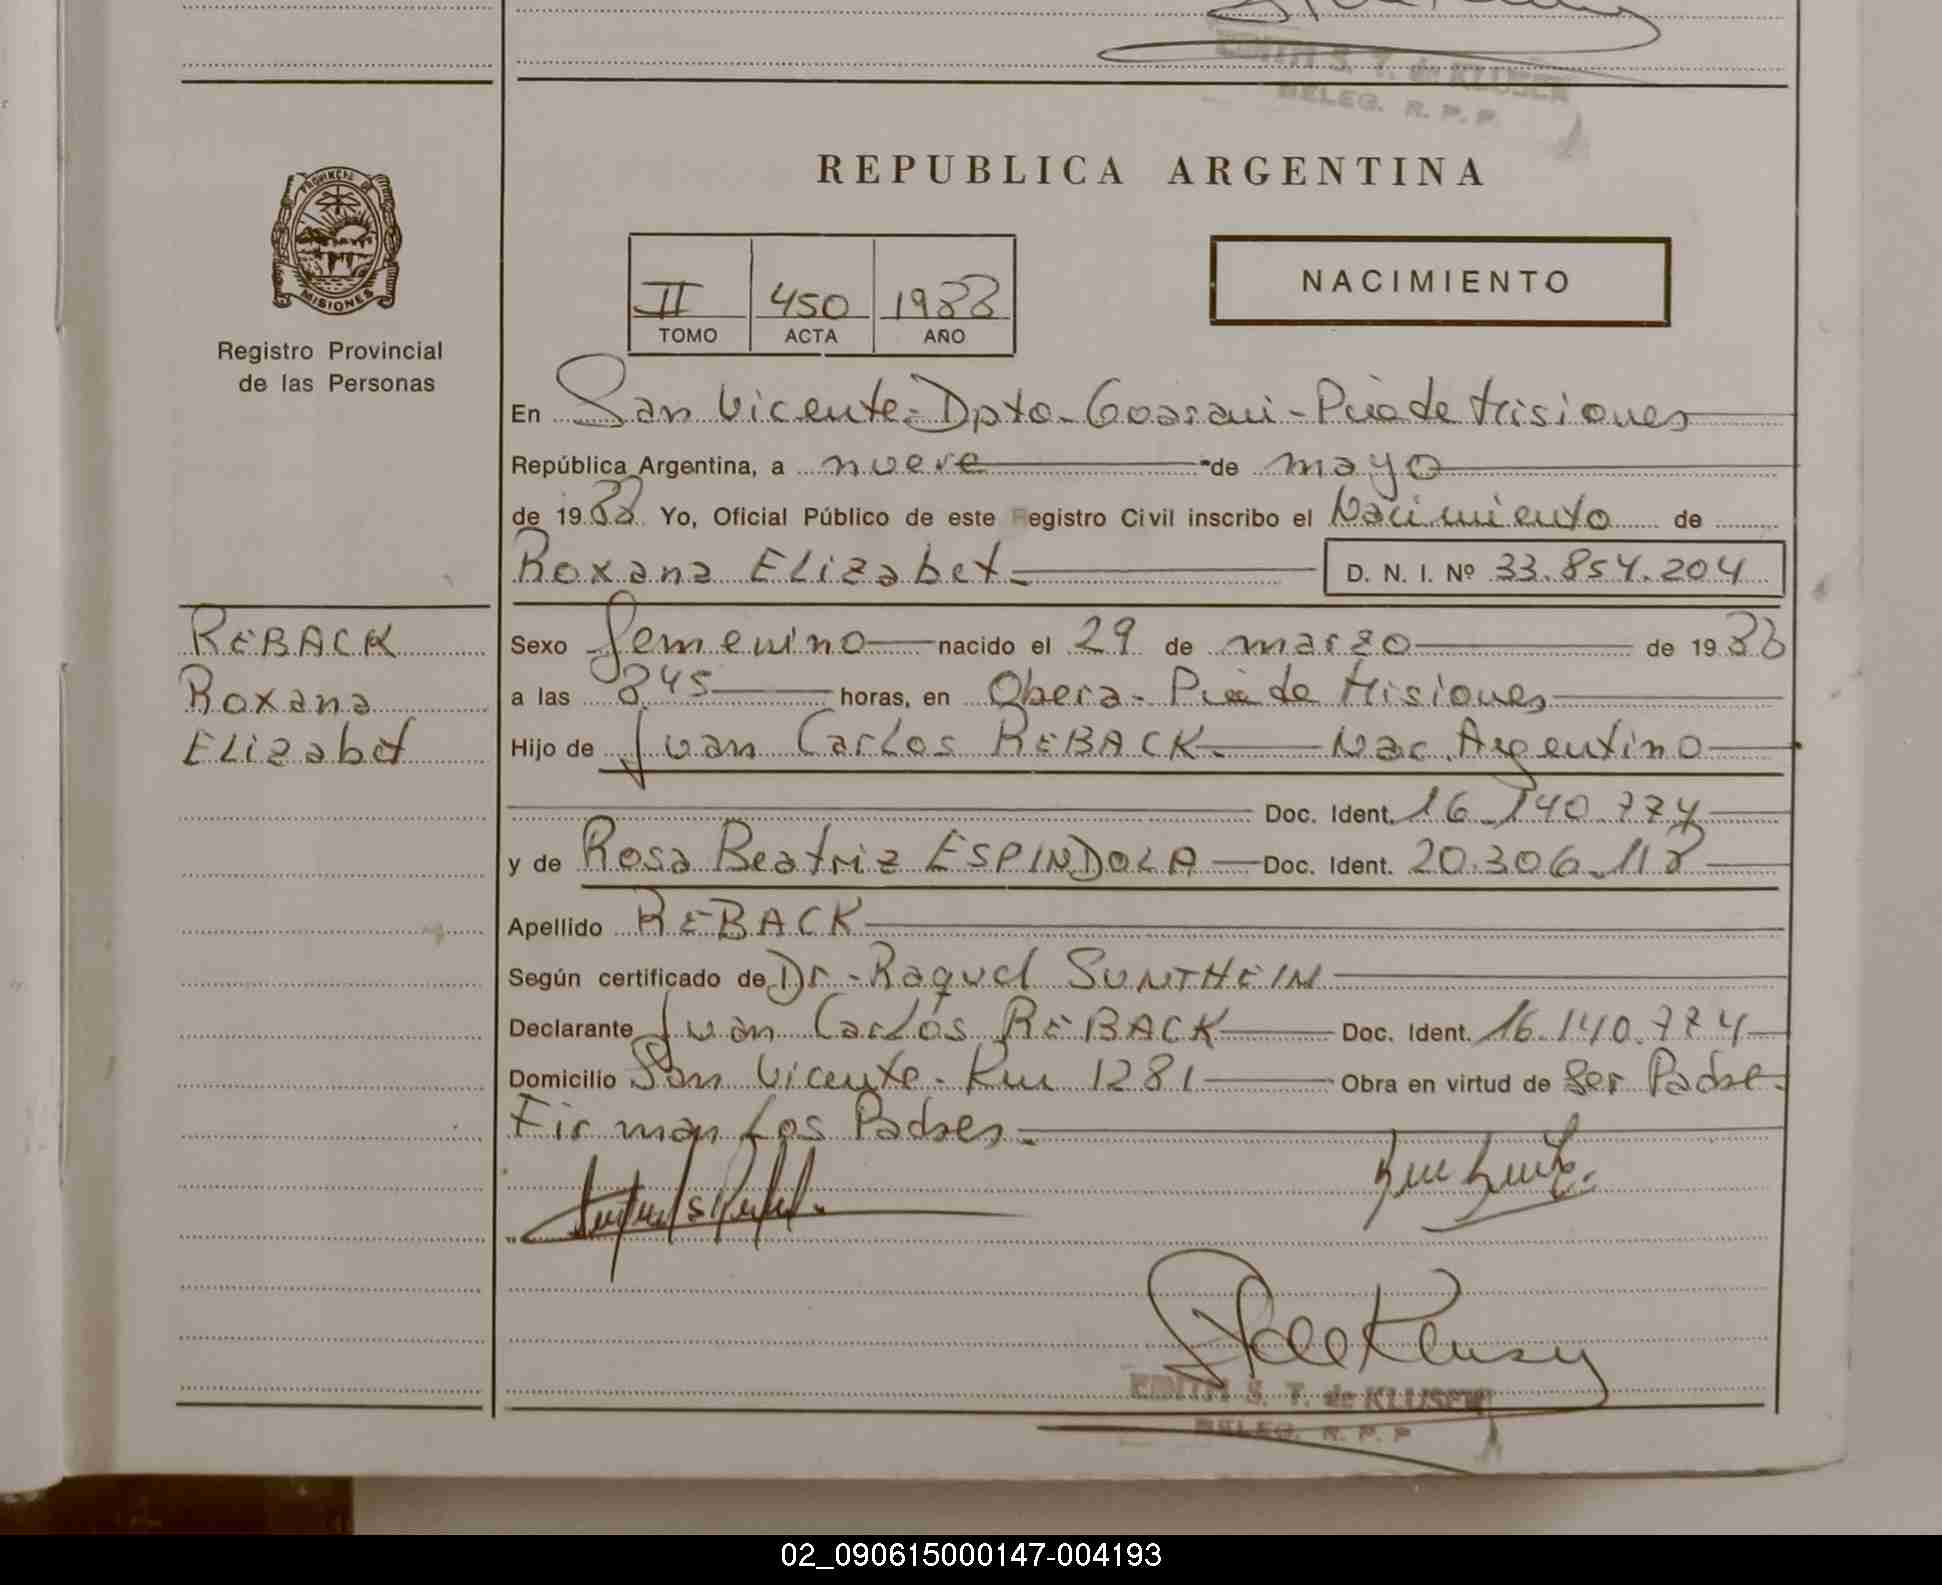 EDITH S. T. de KLUSER
DELEG. R. P. P.
PROVINCIA DE
MISIONES
Registro Provincial
de las Personas
REPUBLICA ARGENTINA
II 450 1988
TOMO ACTA AÑO
NACIMIENTO
En San Vicente-Dpto-Guarani-Pcia de Misiones
República Argentina, a nueve de mayo
de 1988 Yo, Oficial Público de este Registro Civil inscribo el Nacimiento de
Roxana Elizabet D. N. I. Nº 33.854.204
REBACK
Roxana
Elizabet
Sexo femenino nacido el 29 de marzo de 1988
a las 8,45 horas, en Obera-Pcia de Misiones
Hijo de Juan Carlos REBACK. Nac. Argentino
Doc. Ident. 16.140.774
y de Rosa Beatriz ESPINDOLA Doc. Ident. 20.306.118
Apellido REBACK
Según certificado de Dr.-Raquel SUNTHEIN
Declarante Juan Carlos REBACK Doc. Ident. 16.140.774
Domicilio San Vicente-Km 1281 Obra en virtud de Ser Padre.
Firman Los Padres.
EDITH S. T. de KLUSER
DELEG. R. P. P
02_090615000147-004193